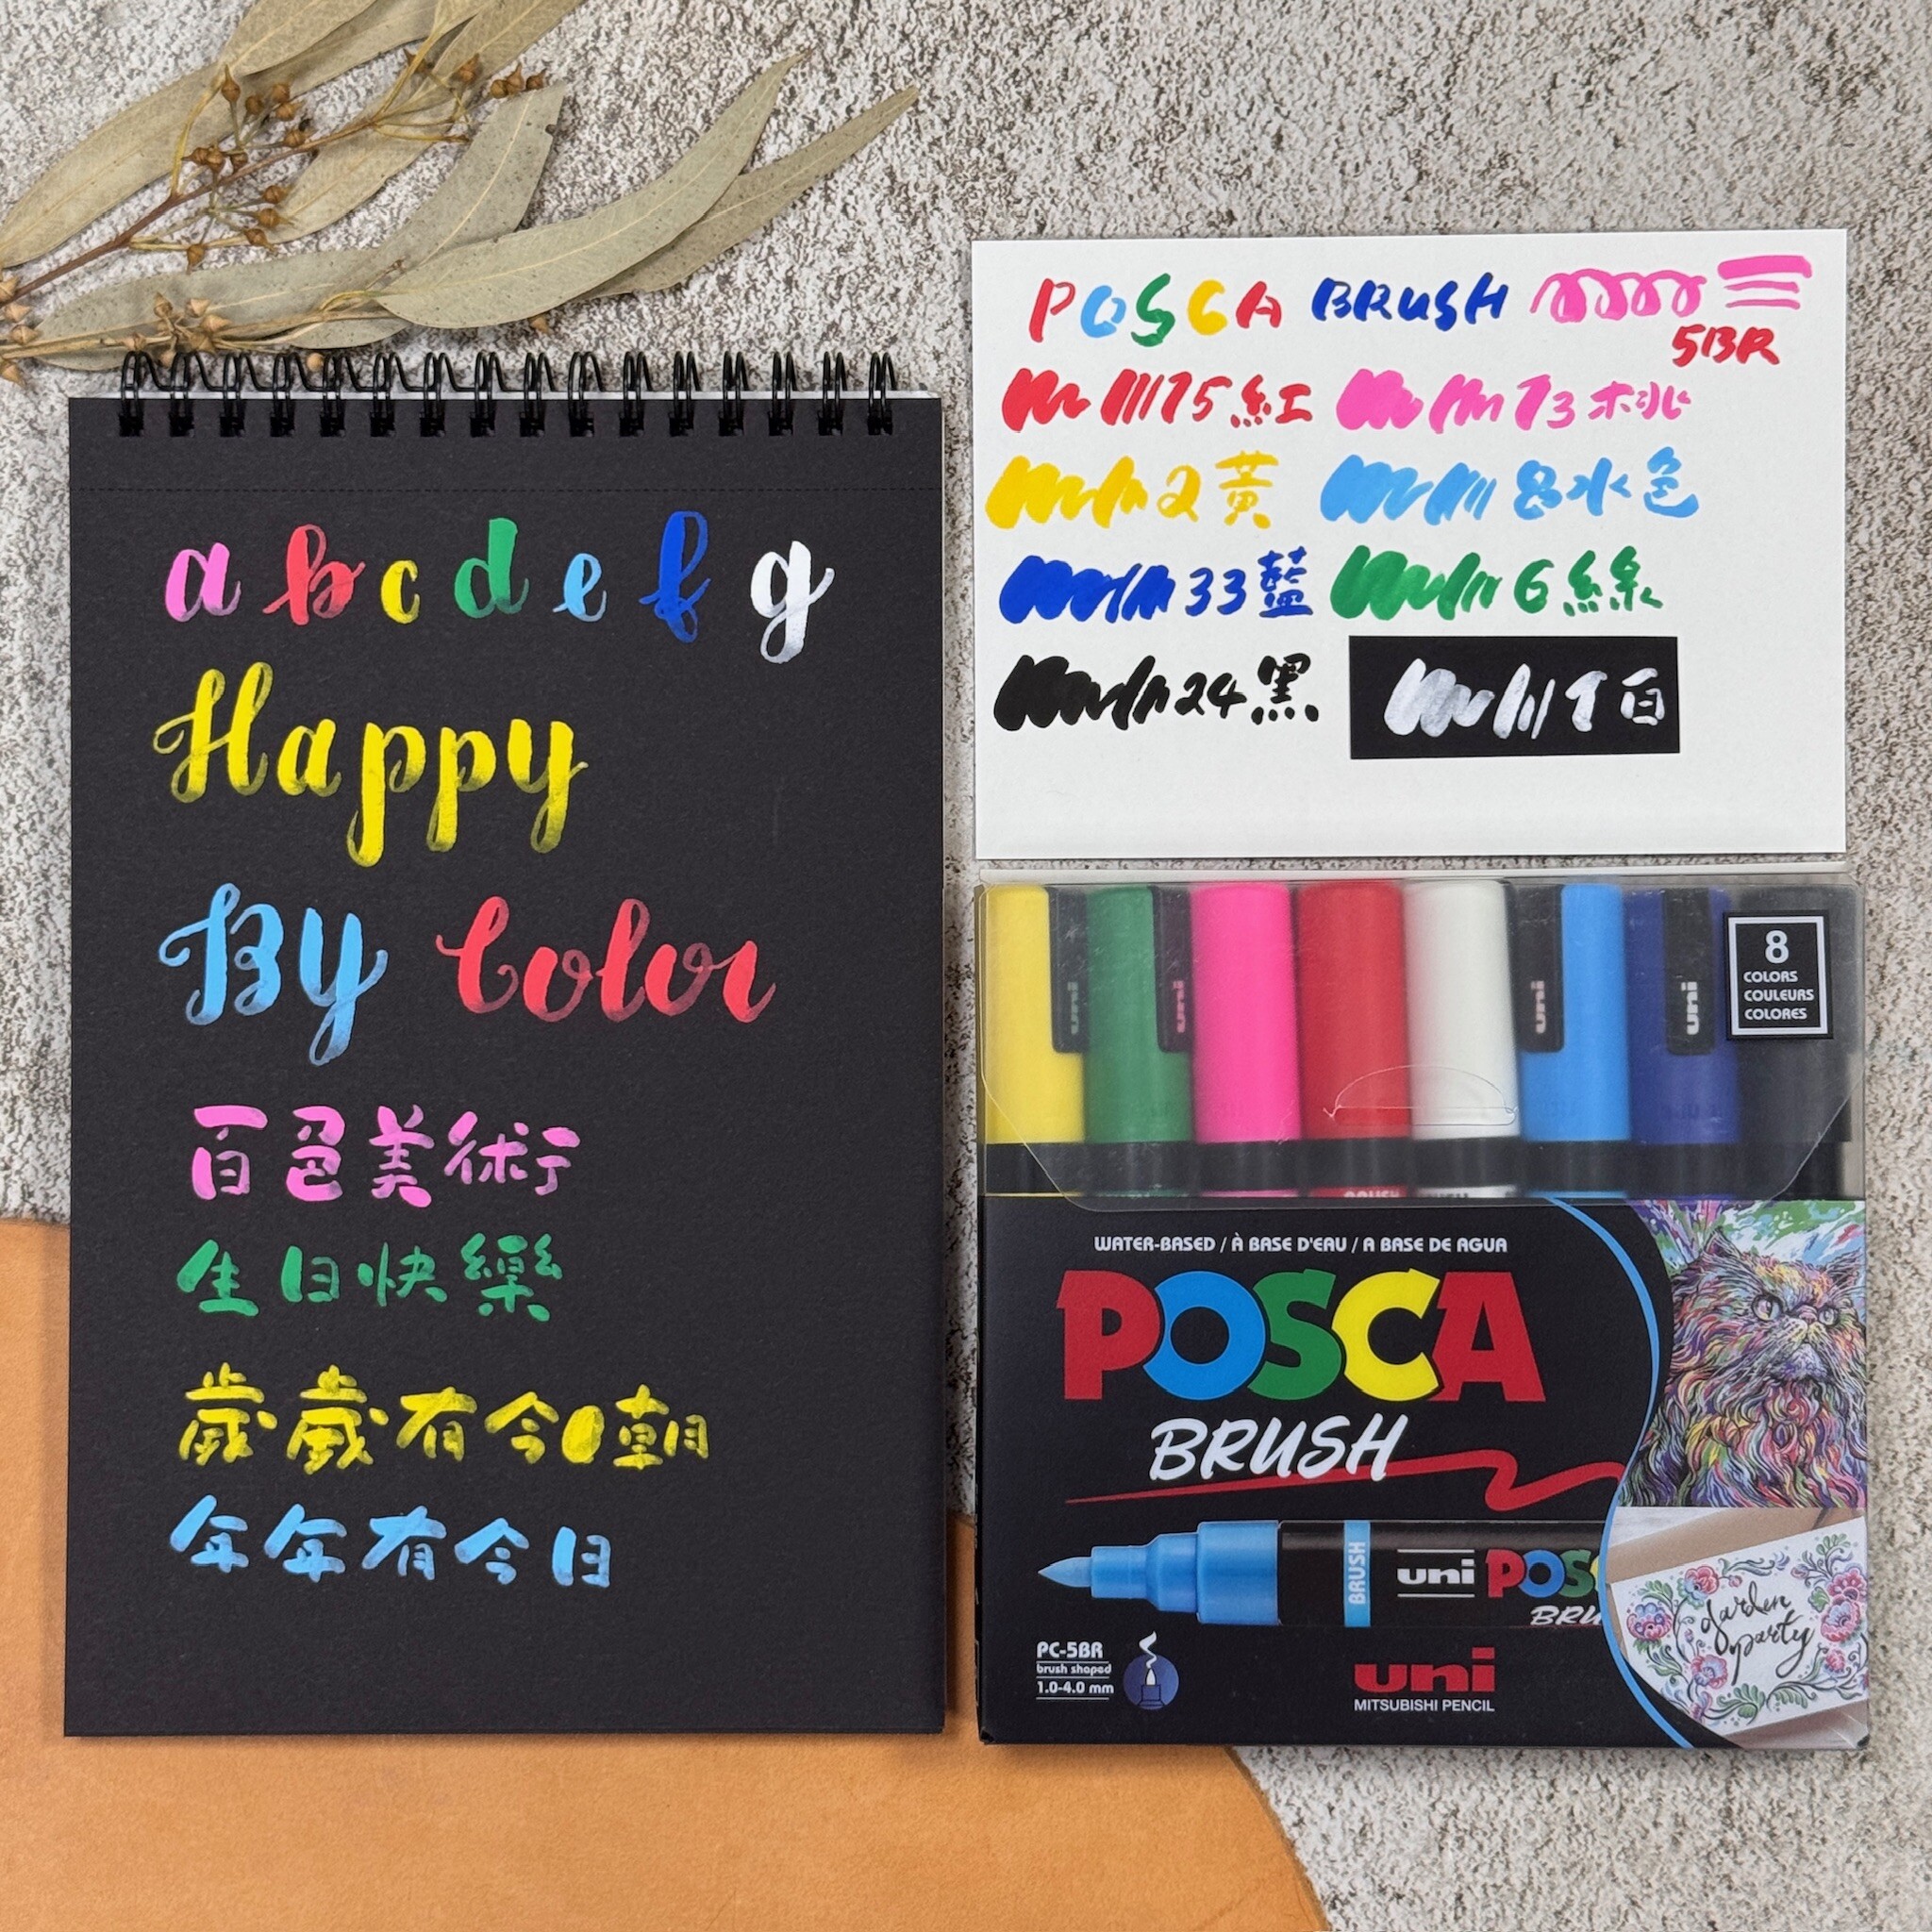 a b c d e f g
Happy
By Color
百色美術
生日快樂
歲歲有今朝
年年有今日
POSCA BRUSH
5BR
15 紅 13 桃
2 黃 8 水色
33 藍 6 綠
24 黑 1 白
uni uni uni uni
8
COLORS
COULEURS
COLORES
WATER-BASED / À BASE D'EAU / A BASE DE AGUA
POSCA
BRUSH
BRUSH uni POSC
BRU
garden
party
PC-5BR
brush shaped
1.0-4.0 mm
uni
MITSUBISHI PENCIL